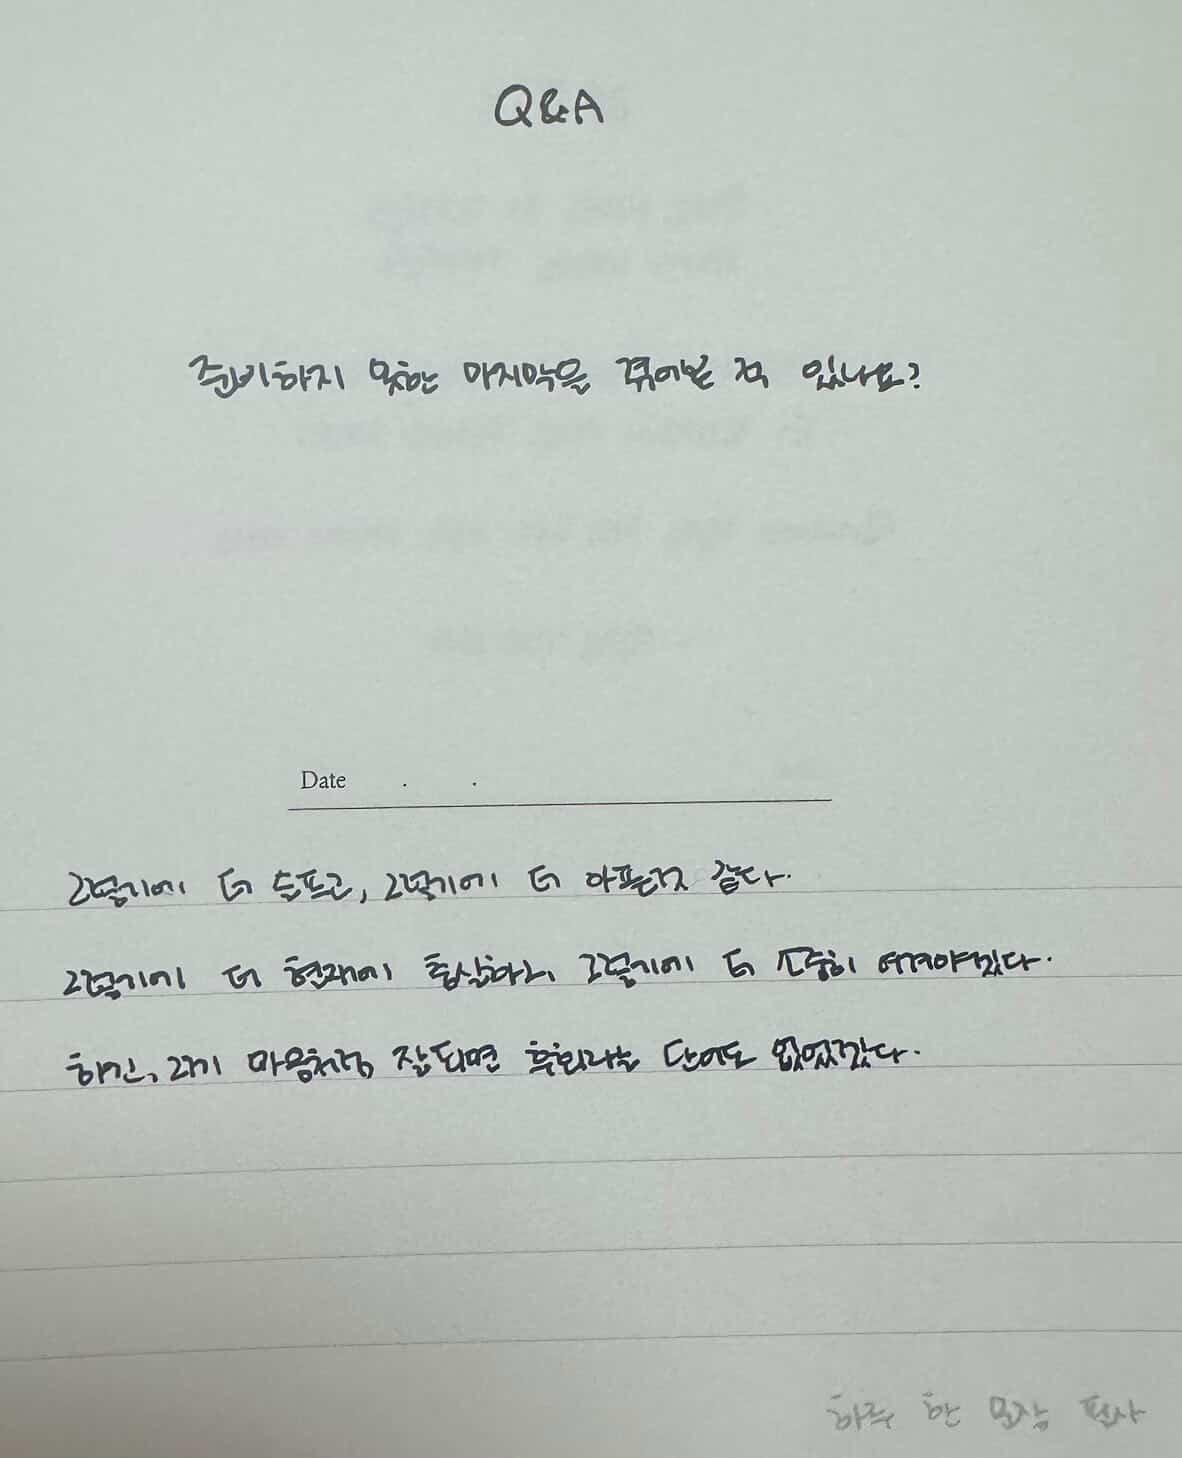 Q&A
준비하지 못한 마지막을 겪어본 적 있나요?
Date . .
그렇기에 더 슬프고, 그렇기에 더 아픈것 같다.
그렇기에 더 현재에 충실하고, 그렇기에 더 소중히 여겨야겠다.
하긴, 그게 마음처럼 잘되면 후회라는 단어도 없었겠다.
하루 한 문장 필사